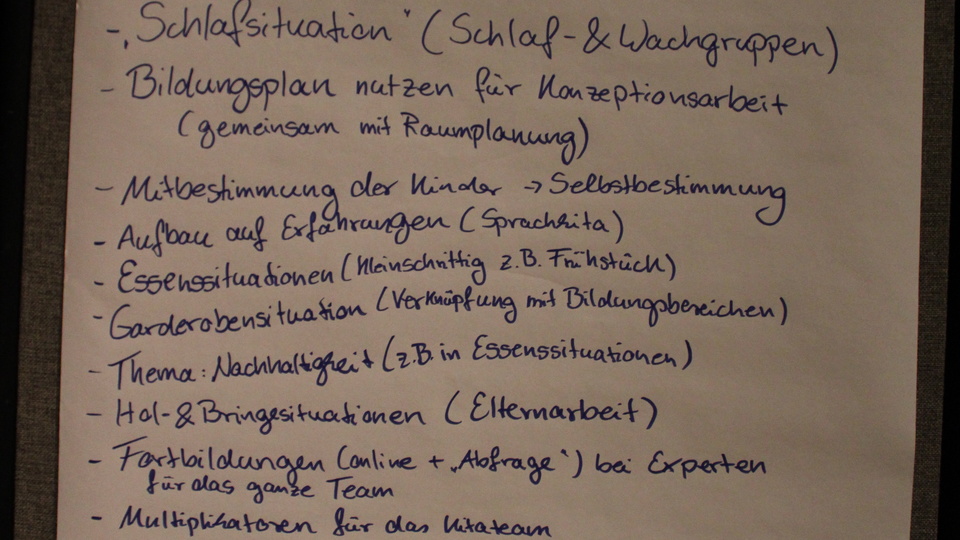 - „Schlafsituation" (Schlaf- & Wachgruppen)
- Bildungsplan nutzen für Konzeptionsarbeit
(gemeinsam mit Raumplanung)
- Mitbestimmung der Kinder → Selbstbestimmung
- Aufbau auf Erfahrungen (Sprachkita)
- Essenssituationen (Kleinschrittig z.B. Frühstück)
- Garderobensituation (Verknüpfung mit Bildungsbereichen)
- Thema: Nachhaltigkeit (z.B. in Essenssituationen)
- Hol- & Bringesituationen (Elternarbeit)
- Fortbildungen (online + „Abfrage") bei Experten
für das ganze Team
- Multiplikatoren für das Kitateam